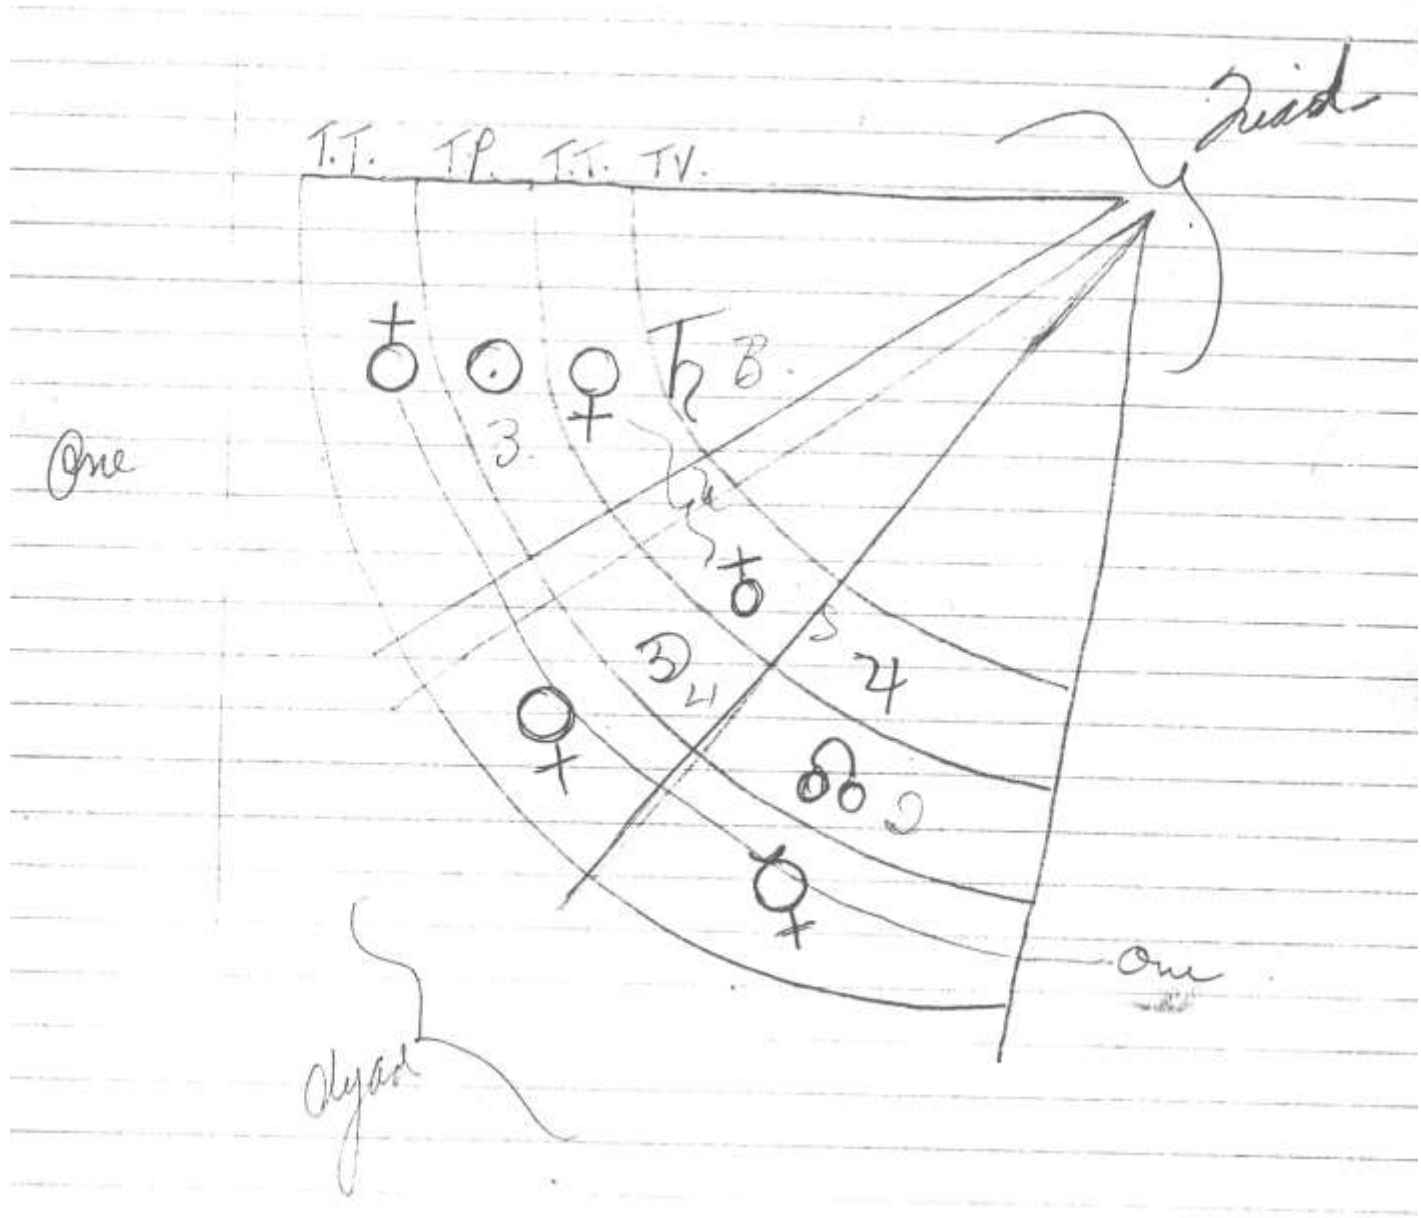 Triad
T.T. T.P. T.T. TV.
♁ ☉ ♀ ♄ B.
3
One
2
♁
3
4
♃
♀
☊
☿
One
dyad